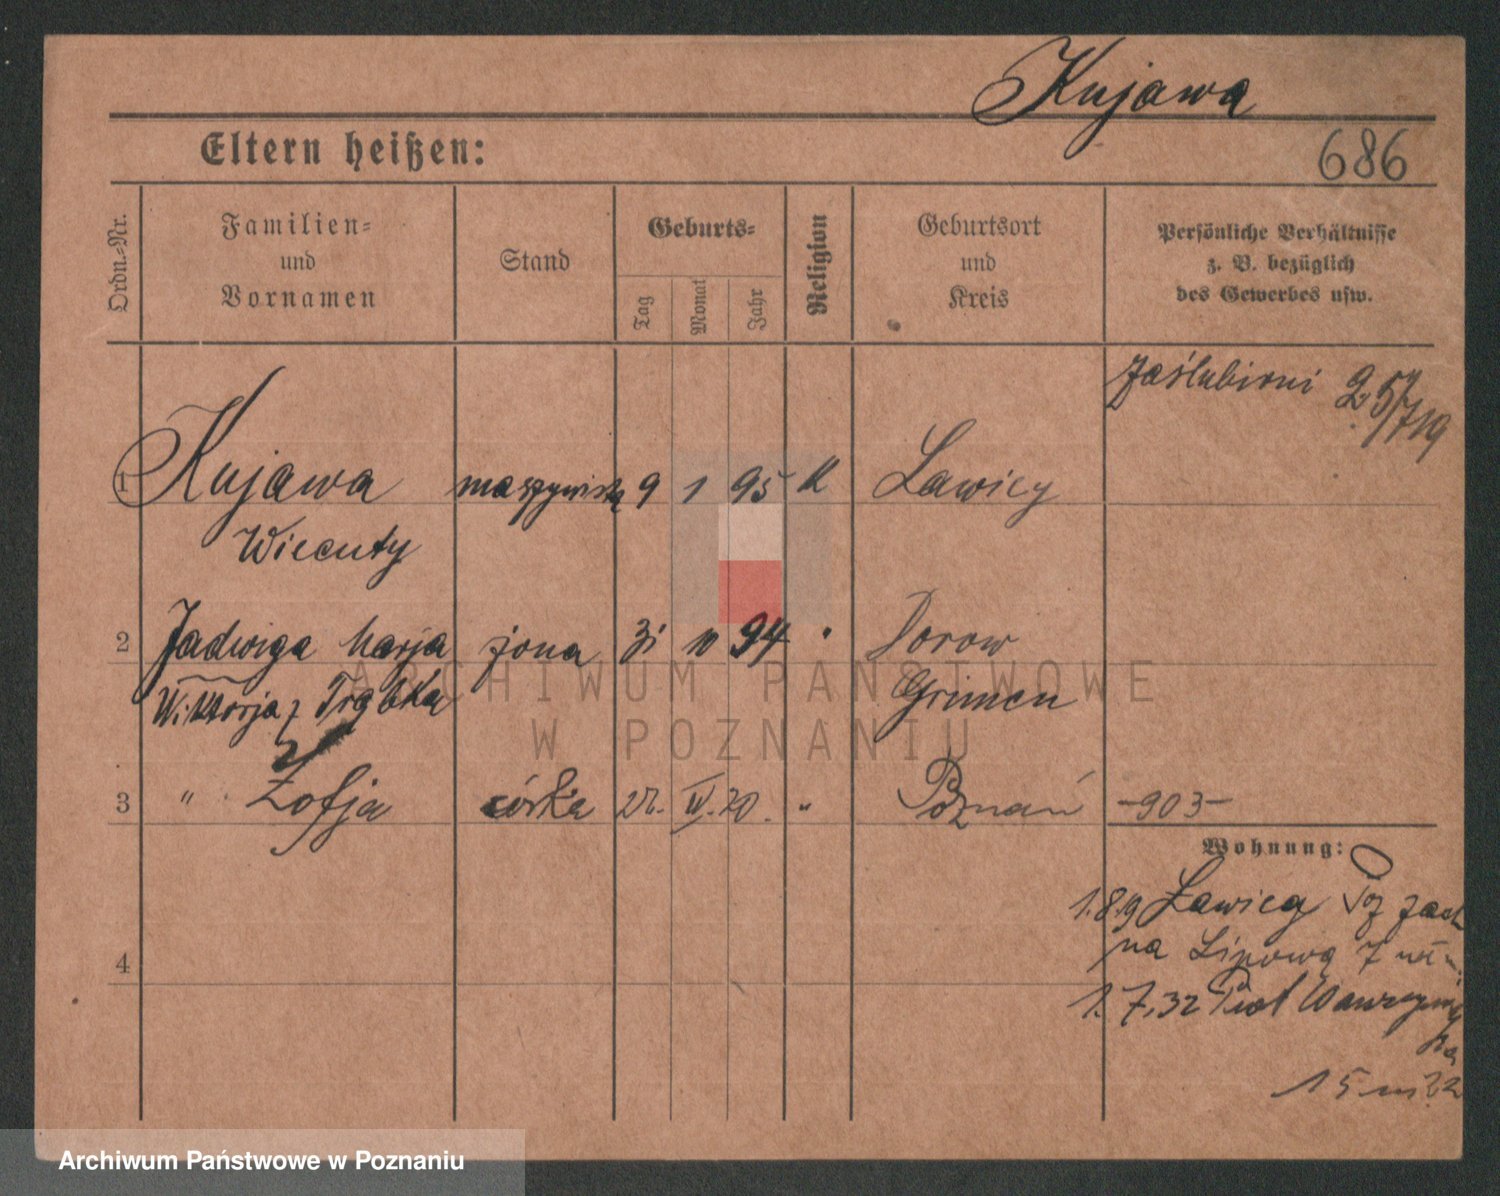 Kujawa
Eltern heißen:
686
Ordn.-Nr.
Familien-
und
Vornamen
Stand
Geburts-
Tag
Monat
Jahr
Religion
Geburtsort
und
Kreis
Persönliche Verhältnisse
z. B. bezüglich
des Gewerbes usw.
zaślubieni 25/7 19
1 Kujawa maszynista 9 1 95 K Lawicy
Wicenty
2 Jadwiga Marja żona 31 10 94 " Dorow
Wiktorja z Trąbka Grimmen
3 " Zofja córka 22. IV. 20. " Poznań -903-
Wohnung:
1.8.19 Ławica
na Lipowa 7
1.7.32
15
4
ARCHIWUM PAŃSTWOWE
W POZNANIU
Archiwum Państwowe w Poznaniu